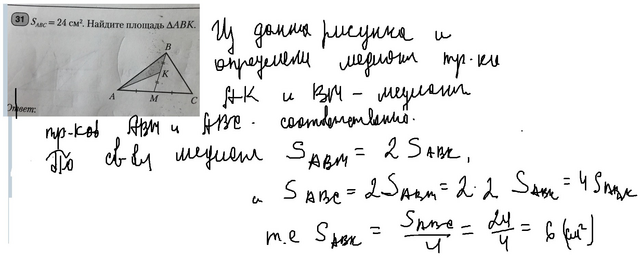 31 S_ABC = 24 см². Найдите площадь ΔABK.
B
K
A M C
Ответ:
Из данна рисунка и
определени медиан тр-ка
AK и BM – медиан
тр-ков ABM и ABC соответственно.
По св-ву медиан S_ABM = 2 S_ABK,
и S_ABC = 2S_ABM = 2·2 S_ABK = 4S_ABK
т.е S_ABK = S_ABC/4 = 24/4 = 6 (см²)